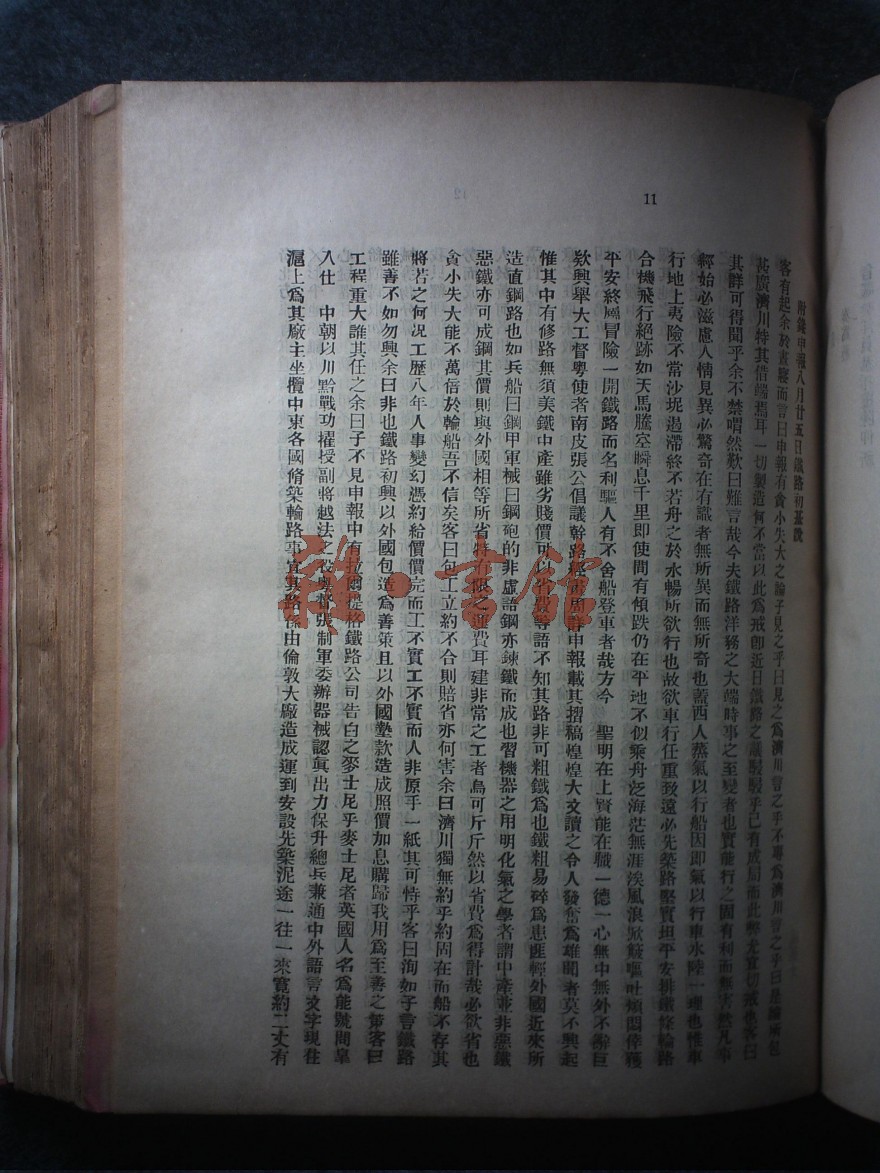 11
附錄申報八月廿五日鐵路初基說
客有起余於晝寢而言曰申報有貪小失大之論子見之乎曰見之爲濟川言之乎不專爲濟川言之乎曰是論承包
甚廣濟川特其借端焉耳一切製造何不當以此爲戒卽近日鐵路之議駸駸乎已有成局而此弊尤宜切戒也客曰
其詳可得聞乎余不禁喟然歎曰難言哉今夫鐵路洋務之大端時事之至變者也實能行之固有利而無害然凡事
經始必滋慮人情見異必驚奇在有識者無所異而無所奇也蓋西人蒸氣以行船因卽氣以行車水陸一理也惟車
行地上夷險不常沙坭過滯終不若舟之於水暢所欲行也故欲車行任重致遠必先築路堅實坦平安排鐵條輪路
合機飛行絕跡如天馬騰空瞬息千里卽使間有傾跌仍在平地不似乘舟泛海茫無涯涘風浪掀簸嘔吐煩悶倖獲
平安終屬冒險一開鐵路而名利驅人有不舍船登車者哉方今　聖明在上賢能在職一德一心無中無外不辭巨
欵興舉大工督粵使者南皮張公倡議幹路經畫周詳申報載其摺稿煌煌大文讀之令人發奮爲雄聞者莫不興起
惟其中有修路無須美鐵中產雖劣賤價可以省費等語不知其路非可粗鐵爲也鐵粗易碎爲患匪輕外國近來所
造直鋼路也如兵船曰鋼甲軍械曰鋼砲的非虛語鋼亦鍊鐵而成也習機器之用明化氣之學者謂中產並非惡鐵
惡鐵亦可成鋼其價則與外國相等所省特有限之運費耳建非常之工者烏可斤斤然以省費爲得計哉必欲省也
貪小失大能不萬倍於輪船吾不信矣客曰包工立約不合則賠省亦何害余曰濟川獨無約乎約固在而船不存其
將若之何况工歷八年人事變幻憑約給價價完而工不實工不實而人非原手一紙其可恃乎客曰洵如子言鐵路
雖善不如勿興余曰非也鐵路初興以外國包造爲善策且以外國墊款造成照價加息購歸我用爲至善之策客曰
工程重大誰其任之余曰子不見申報中有拉爾提格鐵路公司告白之麥士尼乎麥士尼者英國人名爲能號問皐
入仕　中朝以川黔戰功擢授副將越法之役粵督張制軍委辦器械認眞出力保升總兵兼通中外語言文字現住
滬上爲其廠主坐攬中東各國脩築輪路事宜其路係由倫敦大廠造成運到安設先築泥途一往一來寬約二丈有
雅·書館